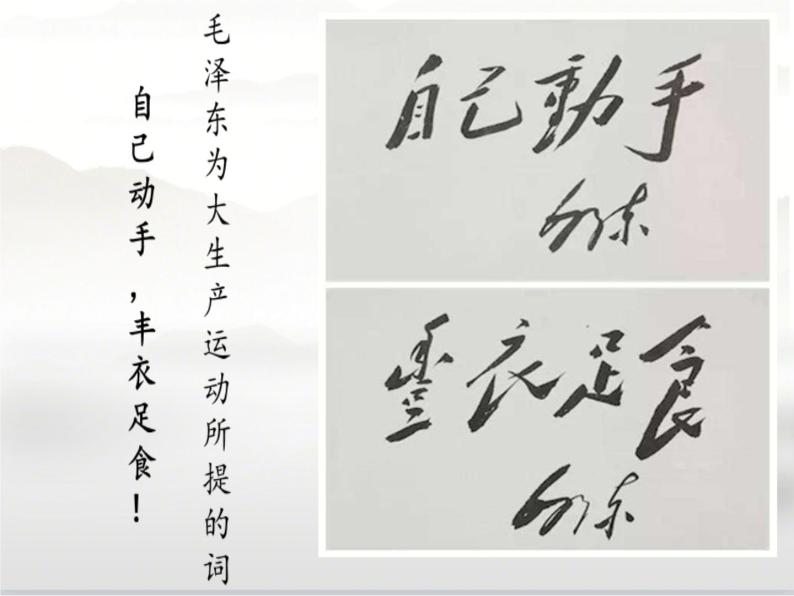 毛泽东为大生产运动所提的词
自己动手,丰衣足食!
自己動手
泽东
豐衣足食
泽东